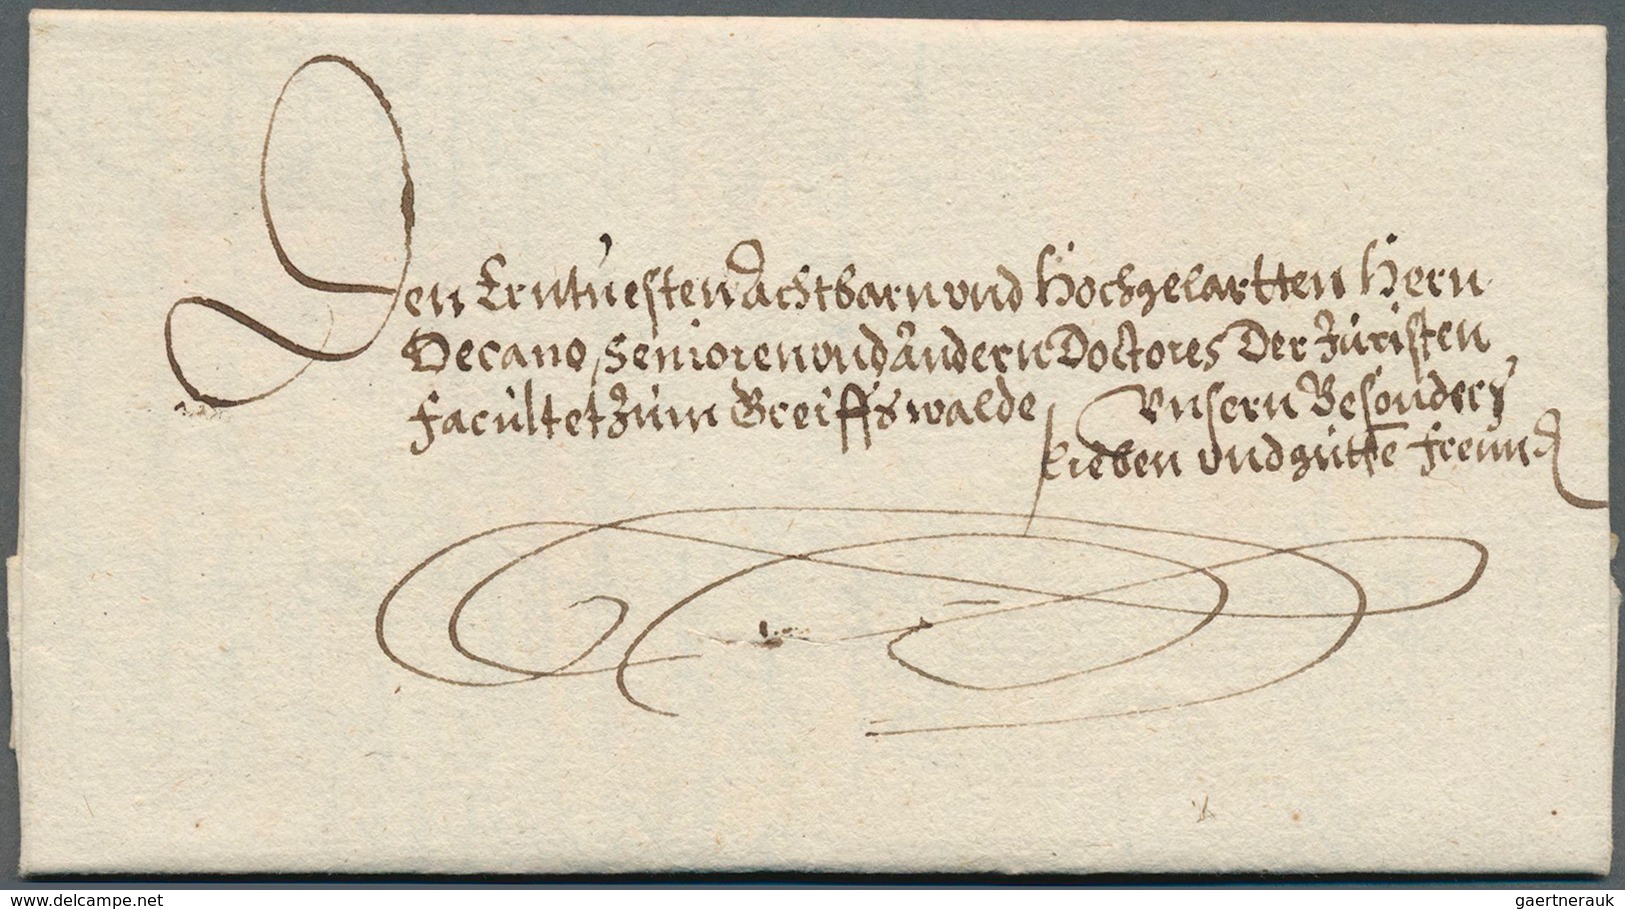 Den Erntuesten Achtbarn vnd Hochgelartten Hern
Decano, Senioren vnd Andern Doctores Der Juristen
Facultet zum Greiffswalde Vnsern Besondern
Lieben vnd gutte Freund
www.delcampe.net
gaertnerauk